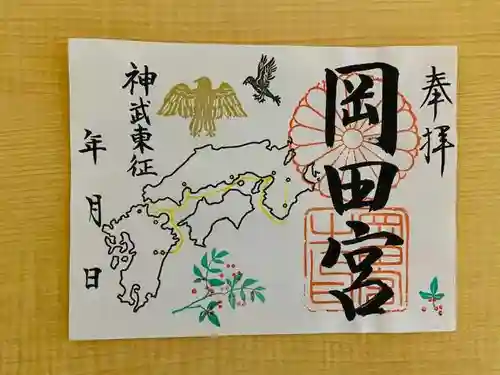 奉拝
岡田宮
神武東征
年月日